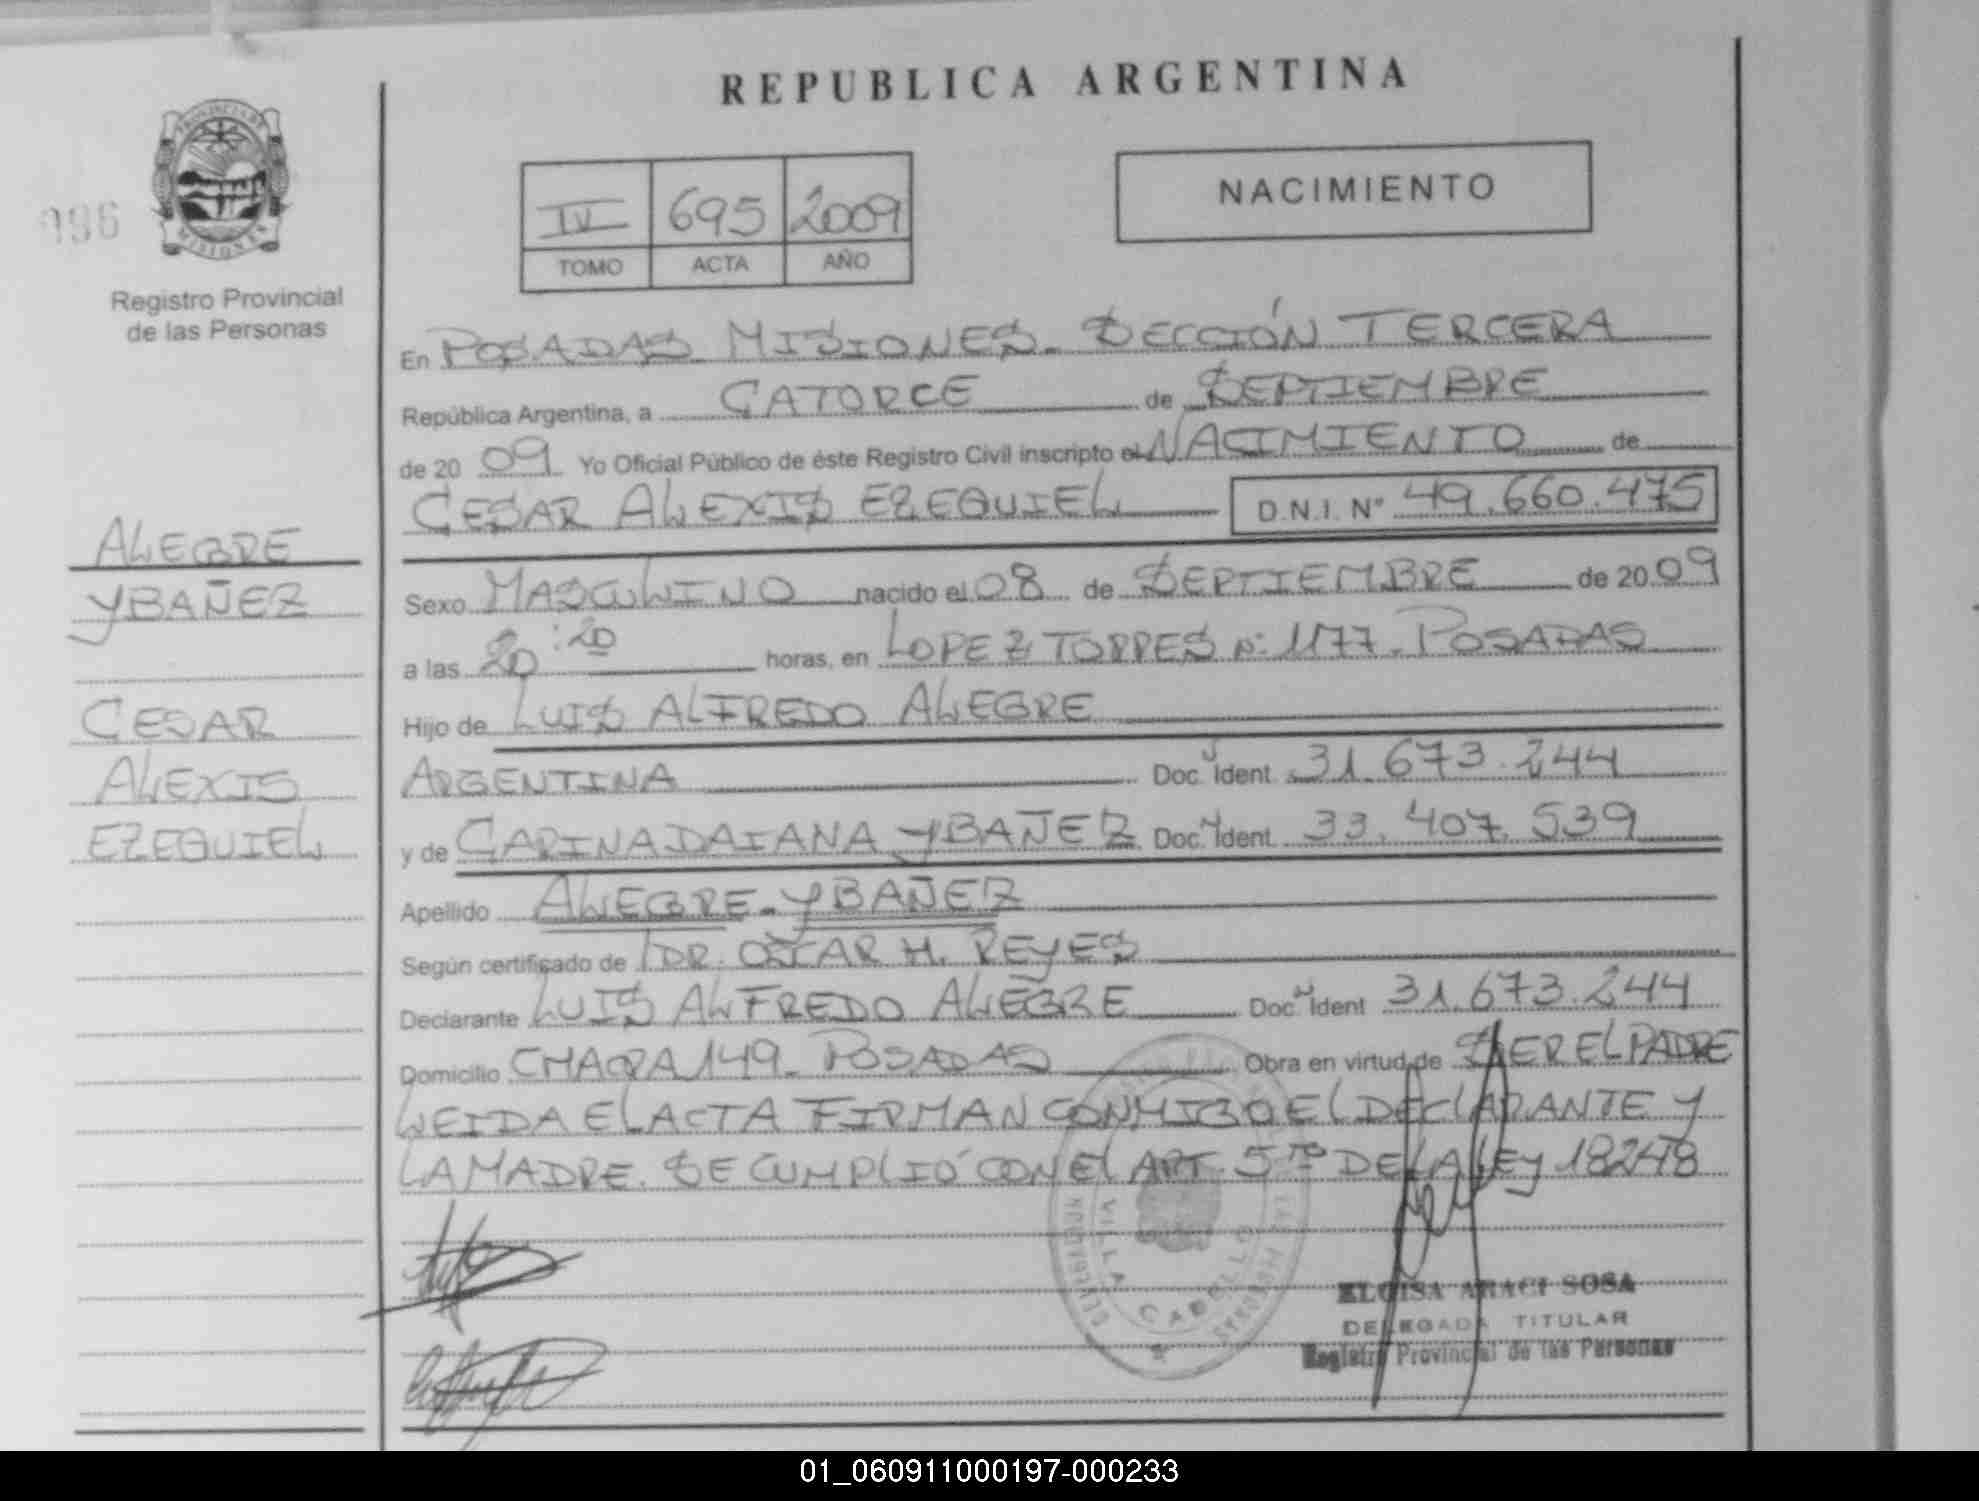 REPUBLICA ARGENTINA
PROVINCIA DE
MISIONES
996
Registro Provincial
de las Personas
IV 695 2009
TOMO ACTA AÑO
NACIMIENTO
En POSADAS MISIONES. SECCIÓN TERCERA
República Argentina, a CATORCE de SEPTIEMBRE
de 20 09 Yo Oficial Público de éste Registro Civil inscripto el NACIMIENTO de
CESAR ALEXIS EZEQUIEL D.N.I. Nº 49.660.475
ALEGRE
YBAÑEZ
CESAR
ALEXIS
EZEQUIEL
Sexo MASCULINO nacido el 08 de SEPTIEMBRE de 20 09
a las 20:20 horas, en LOPEZ TORRES Nº 1177. POSADAS
Hijo de LUIS ALFREDO ALEGRE
ARGENTINA Doc. Ident. 31.673.244
y de CARINA DAIANA YBAÑEZ Doc. Ident. 33.407.539
Apellido ALEGRE-YBAÑEZ
Según certificado de DR. OSCAR H. REYES
Declarante LUIS ALFREDO ALEGRE Doc. Ident 31.673.244
Domicilio CHACRA 149. POSADAS Obra en virtud de SER EL PADRE
LEIDA EL ACTA FIRMAN CONMIGO EL DECLARANTE Y
LA MADRE. SE CUMPLIÓ CON EL ART. 5TO DE LA LEY 18248
VILLA CABELLO
ELOISA ARACI SOSA
DELEGADA TITULAR
Registro Provincial de las Personas
01_060911000197-000233